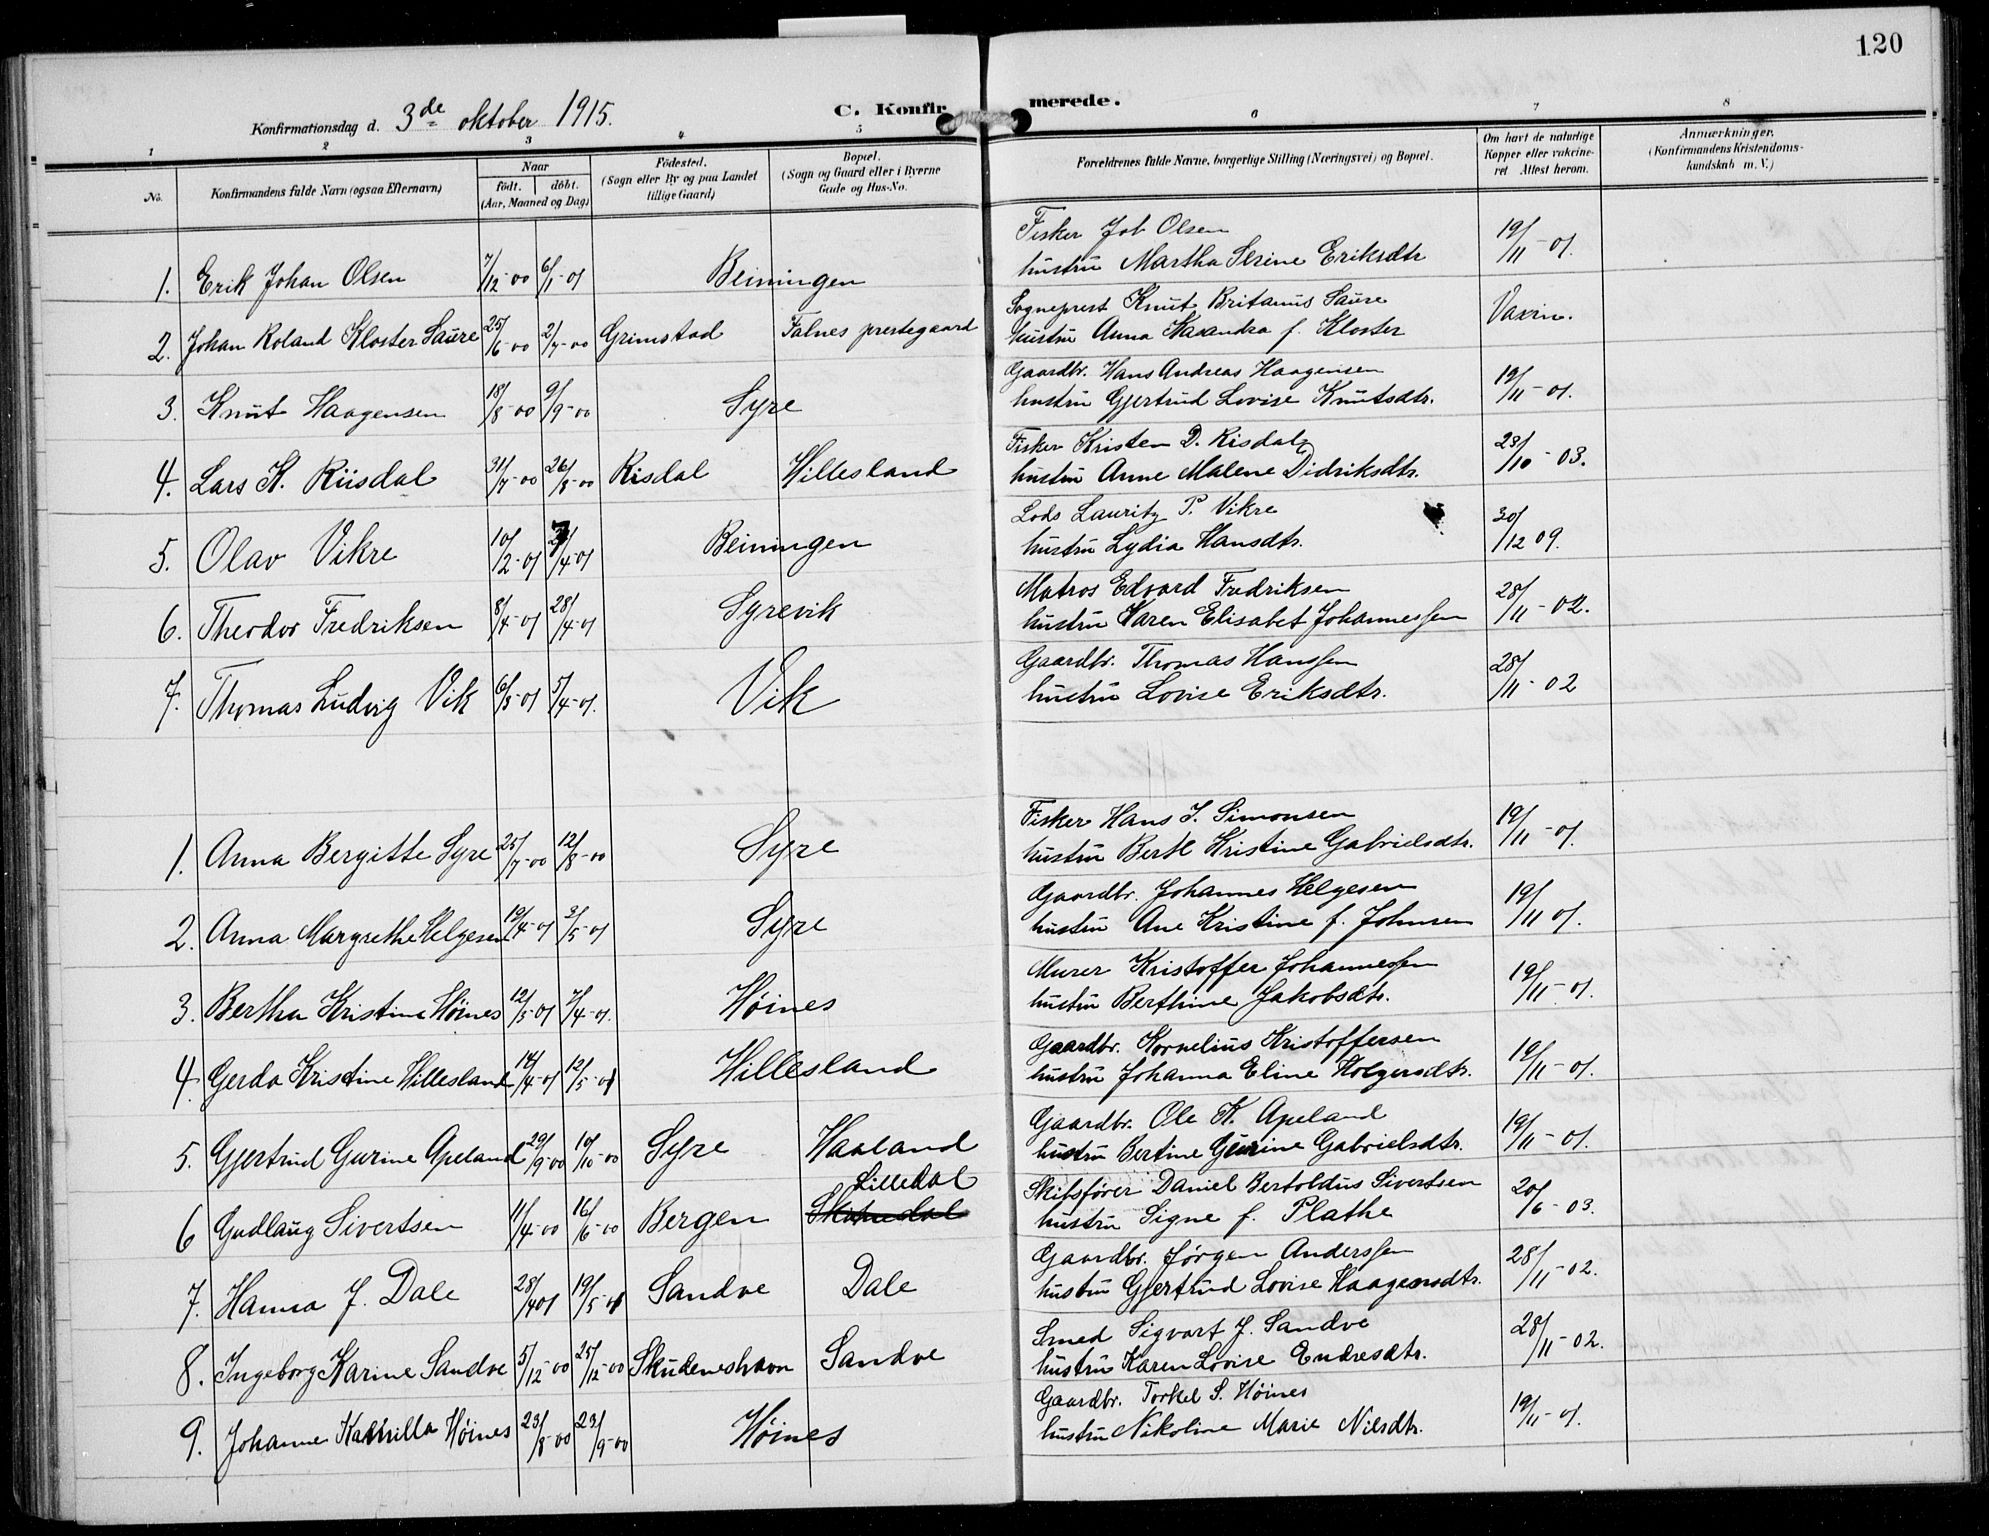 120
Konfirmationsdag d. 3de oktober 1915.
C. Konfirmerede.
1 2 3 4 5 6 7 8
No.
Konfirmandens fulde Navn (ogsaa Efternavn)
Naar
født. døbt.
(Aar, Maaned og Dag)
Fødested.
(Sogn eller By og paa Landet
tillige Gaard)
Bopæl.
(Sogn og Gaard eller i Byerne
Gade og Hus-No.
Forældrenes fulde Navne, borgerlige Stilling (Næringsvei) og Bopæl.
Om havt de naturlige
Kopper eller vakcine-
ret Attest herom.
Anmærkninger.
(Konfirmandens Kristendoms-
kundskab m. V.)
1. Erik Johan Olsen 7/12-00 6/1-01 Beiningen Fisker Job Olsen 19/11-01.
hustru Martha Serine Eriksdtr
2. Johan Roland Kloster Saure 25/6-00 2/7-00 Grimstad Falnes prestegaard Sogneprest Knut Britanus Saure Vaxin.
hustru Anna f. Kloster
3. Knut Haagensen 18/8-00 9/9-00 Syre Gaardbr. Hans Andreas Haagensen 19/11-01.
hustru Gjertrud Lovise Knutsdtr.
4. Lars K. Riisdal 31/7-00 26/8-00 Risdal Hillesland Fisker Kristen D. Risdal 23/10-03.
hustru Anne Malene Didriksdtr.
5. Olav Vikre 10/2-01 /4-01 Beiningen Lods Lauritz P. Vikre 30/12 09.
hustru Lydia Hansdtr.
6. Theodor Fredriksen 8/4-01 28/4-01 Syrevik Matros Edvard Fredriksen 28/11-02.
hustru Karen Elisabet Johannessen
7. Thomas Ludvig Vik 6/3-01 5/4-01. Vik Gaardbr. Thomas Hanssen 28/11-02
hustru Lovise Eriksdtr.
1. Anna Bergitte Syre 25/7-00 12/8-00 Syre Fisker Hans J. Simonsen 19/11-01.
hustru Berte Kristine Gabrielsdtr.
2. Anna Margrethe Helgesen 19/4-01 3/5-01 Syre Gaardbr. Johannes Helgesen 19/11 01.
hustru Ane Kristine f. Johnsen
3. Bertha Kristine Høines 12/3-01 7/4-01. Høines Murer Kristoffer Johannessen 19/11-01.
hustru Berthine Jakobsdtr.
4. Gerda Kristine Hillesland 14/4-01 12/5-01 Hillesland Gaardbr. Kornelius Kristoffersen 19/11-01.
hustru Johanna Eline Holgersdtr.
5. Gjertrud Gurine Apeland 20/9-00 10/10-00 Syre Haaland Gaardbr. Ole K. Apeland 19/11-01.
hustru Bertine Gurine Gabrielsdtr.
6 Gudlaug Sivertsen 11/4-00 16/6-00 Bergen Lilledal Skibsfører Daniel Bertoldus Sivertsen 20/6-03.
hustru Signe f. Plathe
7. Hanna J. Dale 28/4 01 19/5-01 Sandve Dale Gaardbr. Jørgen Anderssen 28/11-02.
hustru Gjertrud Lovise Haagensdtr.
8. Ingeborg Karine Sandve 5/12-00 25/12-00 Skudeneshavn Sandve Smed Sigvart J. Sandve 28/11-02.
hustru Karen Lovise Endresdtr.
9. Johanne Høines 23/8-00 23/9-00 Høines Gaardbr. Torkel S. Høines 19/11-01.
hustru Nikoline Marie Nilsdtr.